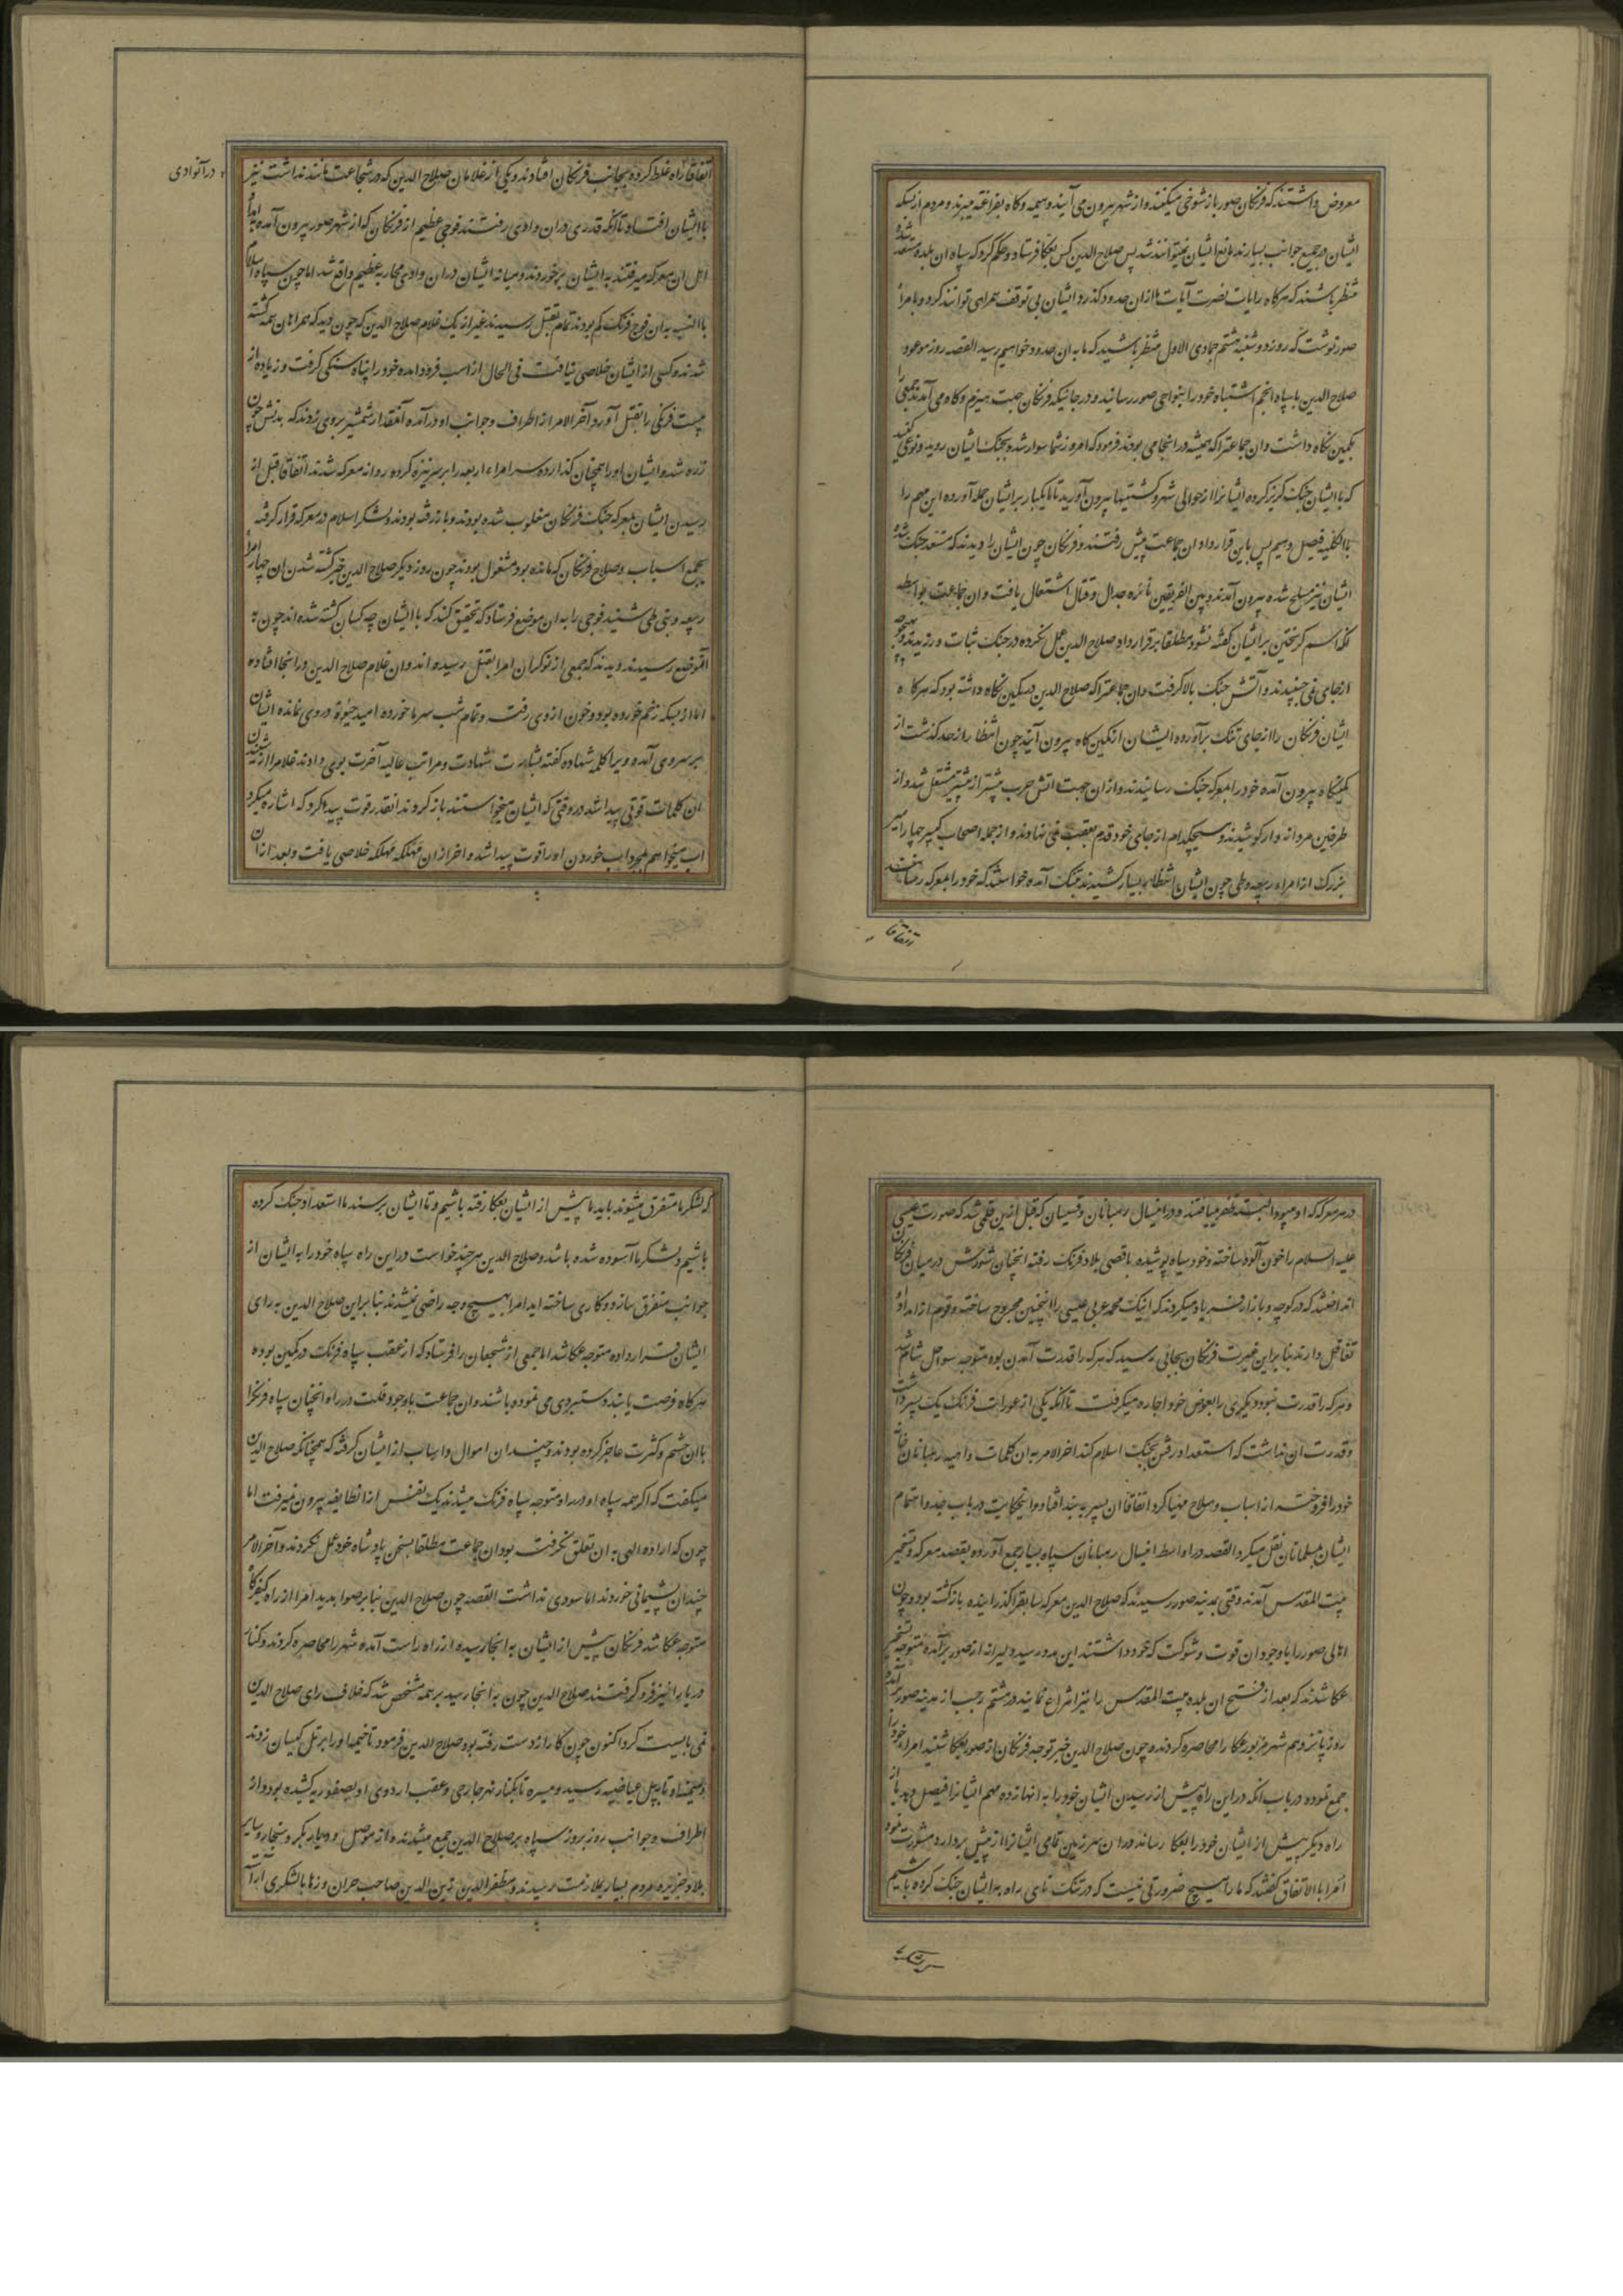 معروض داشتند که فرنکان صور باز شوخی میکنند و از شهر بیرون می آیند و هیمه و کاه بفراغته میبرند و مردم از بسکه
ایشان در جمیع جوانب بسیارند مانع ایشان نمیتوانند شد پس صلاح الدین کس بعکا فرستاد و حکم کرد که سپاه ان بلده مستعد شده
منتظر باشند که هرکاه رایات نصرت آیات ما ازان حدود کذرد ایشان بی توقف همراهی توانند کرد و بامراء
صور نوشت که روز دوشنبه هشتم جمادی الاول منتظر باشید که ما به ان حدود خواهیم رسید القصه روز موعود
صلاح الدین با سپاه انجم اشتباه خود را بنواحی صور رسانید و در جائیکه فرنکان جهت هیزم و کاه می آمدند جمعی را
بکمین نکاه داشت وان جماعتیرا که همیشه در انجا می بودند فرمود که امروز شما سوار شده بجنک ایشان روید و نوعی کنید
که با ایشان جنک کریز کرده ایشانرا از حوالی شهر و کشتیها بیرون آورید تا ما یکبار بر ایشان حمله آورده این مهم را
بالکلیه فیصل دهیم پس باین قرارداد ان جماعت پیش رفتند و فرنکان چون ایشان را دیدند که مستعد جنک شده
ایشان نیز مسلح شده بیرون آمدند و بین الفریقین نائره جدال و قتال اشتعال یافت وان جماعت بواسطه
انکه اسم کریختن بر ایشان کفته نشود مطلقا بر قرارداد صلاح الدین عمل نکرده در جنک ثبات ورزیدند و بهیچوجه
از جای نمی جنبیدند و آتش جنک بالا کرفت وان جماعتیرا که صلاح الدین در کمین نکاه داشته بود که هرکاه
ایشان فرنکان را از جای تنک برآورده ایشان از کمین کاه بیرون آیند چون انتظار از حد کذشت از
کمینکاه بیرون آمده خود را بمعرکه جنک رسانیدند و ازان جهت اتش حرب بیشتر از پیشتر مشتعل شد و از
طرفین مردانه وار کوشیدند و هیچکدام از جای خود قدم بعقب نمی نهادند و از جمله اصحاب کمین چهار امیر
بزرک از امراء ربیعه و طی چون ایشان انتظار بسیار کشیدند بتنک آمده خواستند که خود را بمعرکه رسانند
اتفاقا
اتفاقا راه غلط کرده بجانب فرنکان افتادند و یکی از غلامان صلاح الدین که در شجاعت مانند نداشت نیز
در آنوادی
با ایشان افتاد تا انکه قدری دران وادی رفتند فوجی عظیم از فرنکان که از شهر صور بیرون آمده بامداد
اهل ان معرکه میرفتند به ایشان برخوردند و میانه ایشان دران وادی محاربه عظیم واقع شد اما چون سپاه اسلام
باالنسبه به ان فوج فرنک کم بودند تمام بقتل رسیدند غیر از یک غلام صلاح الدین که چون دید که همراهان همه کشته
شدند و کسی از ایشان خلاصی نیافت فی الحال از اسب فرود امده خود را پناه سنکی کرفت و زیاده از
بیست فرنکی را بقتل آورد و آخر الامر از اطراف و جوانب او درآمده آنقدار شمشیر بروی زدند که بدنش چون
زره شد و ایشان او را همچنان کذارده سر امراء اربعه را بر سر نیزه کرده روانه معرکه شدند اتفاقا قبل از
رسیدن ایشان بمعرکه جنک فرنکان مغلوب شده بودند و باز رفته بودند و لشکر اسلام در معرکه قرار کرفته
بجمع اسباب و صلاح فرنکان که مانده بود مشغول بودند چون روز دیکر صلاح الدین خبر کشته شدن ان چهار امراء
ربیعه و بنی طی شنید فوجی را به ان موضع فرستاد که تحقیق کنند که با ایشان چه کسان کشته شده اند چون به
آنموضع رسیدند و دیدند که جمعی از نوکران امرا بقتل رسیده اند وان غلام صلاح الدین در انجا افتاده
اما از بسکه زخم خورده بود و خون از وی رفت و تمام شب سرما خورده امید حیوة در وی نمانده ایشان
بر سر وی آمده ویرا کلمه شهاده کفته بشارت شهادت و مراتب عالیه آخرت بوی دادند غلام را از شنیدن
ان کلمات قوتی پیدا شد در وقتی که ایشان میخواستند باز کردند انقدر قوت پیدا کرد که اشاره میکرد
اب میخواهم بمجرد اب خوردن او را قوت پیدا شد و اخر ازان مهلکه مهلکه خلاصی یافت و بعد ازان
در هر معرکه که او میبود البته ظفر مییافتند و در این سال رهبانان و قسیسان که قبل ازین قلمی شد که صورت عیسی
علیه السلام را خون آلود ساخته و خود سیاه پوشیده باقصی بلاد فرنک رفته انچنان شورش در میان فرنکان
انداختند که در کوچه و بازار فریاد میکردند که اینک محمد عربی عیسی را اینچنین مجروح ساخته و قوم از امداد او
تغافل دارند بنابراین غیرت فرنکان بجائی رسید که هرکه را قدرت آمدن بود متوجه سواحل شام شد
و هرکه را قدرت نبود دیکری را بعوض خود اجاره میکرفت تا انکه یکی از عورات فرنک یک پسر داشت
و قدرت ان نداشت که استعداد رفتن بجنک اسلام کند اخر الامر به ان کلمات واهیه رهبانان خانه
خود را فروخته از اسباب و سلاح مهیا کرد اتفاقا ان پسر به بند افتاد و اینحکایت در باب جد و اهتمام
ایشان بمسلمانان نقل میکرد القصه در اواسط این سال رهبانان سپاه بسیار جمع آورده بقصد معرکه و تسخیر
بیت المقدس آمدند وقتی بمدینه صور رسیدند که صلاح الدین معرکه سابقرا کذرانیده بازکشته بود و چون
اهالی صور را باوجود ان قوت و شوکت که خود داشتند این مدد رسید دلیرانه از صور برآمده متوجه تسخیر
عکا شدند که بعد از فتح ان بلده بیت المقدس را نیز انتزاع نمایند در هشتم رجب از مدینه صور برآمده
روز پانزدهم شهر مزبور عکا را محاصره کردند و چون صلاح الدین خبر توجه فرنکان از صور بعکا شنید امراء خود را
جمع نموده در باب انکه در این راه پیش از رسیدن ایشان خود را به انها زده مهم ایشانرا فیصل دهد یا از
راه دیکر پیش از ایشان خود را بعکا رساند و دران سرزمین قایمی ایشانرا از پیش بردارد مشورت نمود
امرا باالاتفاق کفتند که ما را هیچ ضرورتی نیست که در تنک نای راه به ایشان جنک کرده باشیم
که لشکر ما متفرق میشوند باید ما پیش از ایشان بعکا رفته باشیم و تا ایشان برسند ما استعداد جنک کرده
باشیم و لشکر ما آسوده شده باشد و صلاح الدین هر چند خواست در این راه سپاه خود را به ایشان از
جوانب متفرق سازد و کاری ساخته اید امرا بهیچ وجه راضی نشدند بنابراین صلاح الدین به رای
ایشان قرار داده متوجه عکا شد اما جمعی از شجعان را فرستاد که از عقب سپاه فرنک در کمین بوده
هرکاه فرصت یابند دستبردی می نموده باشند وان جماعت باوجود قلت در راه انچنان سپاه فرنکرا
باان حشم و کثرت عاجز کرده بودند و چندان اموال و اسباب از ایشان کرفته که همچنانکه صلاح الدین
میکفت که اکر همه سپاه او در راه متوجه سپاه فرنک میشدند یک نفس ازان طایفه بیرون نمیرفت اما
چون که اراده الهی به ان تعلق نکرفت بود ان جماعت مطلقا بسخن پادشاه خود عمل نکردند و آخر الامر
چندان پشیمانی خوردند اما سودی نداشت القصه چون صلاح الدین بنابر صوابدید امرا از راه کفرکنا
متوجه عکا شد فرنکان پیش از ایشان به انجا رسیده از راه راست آمده شهر را محاصره کردند و کنار
دریا را نیز فرو کرفتند صلاح الدین چون به انجا رسید بر همه مشخص شد که خلاف رای صلاح الدین
نمی بایست کرد اکنون چون کار از دست رفته بود صلاح الدین فرمود تا خیمه او را بر تل کیسان زدند
و میمنه او تا بپل عیاضیه رسید و میسره تا بکنار نهر جاری و عقب اردوی او بصفوریه کشیده بود و از
اطراف و جوانب روز بروز سپاه بر صلاح الدین جمع میشدند از موصل و دیار بکر و سنجار و سایر
بلاد جزیره مردم بسیار بملازمت رسیدند و مظفر الدین زین الدین صاحب حران و رها با لشکری